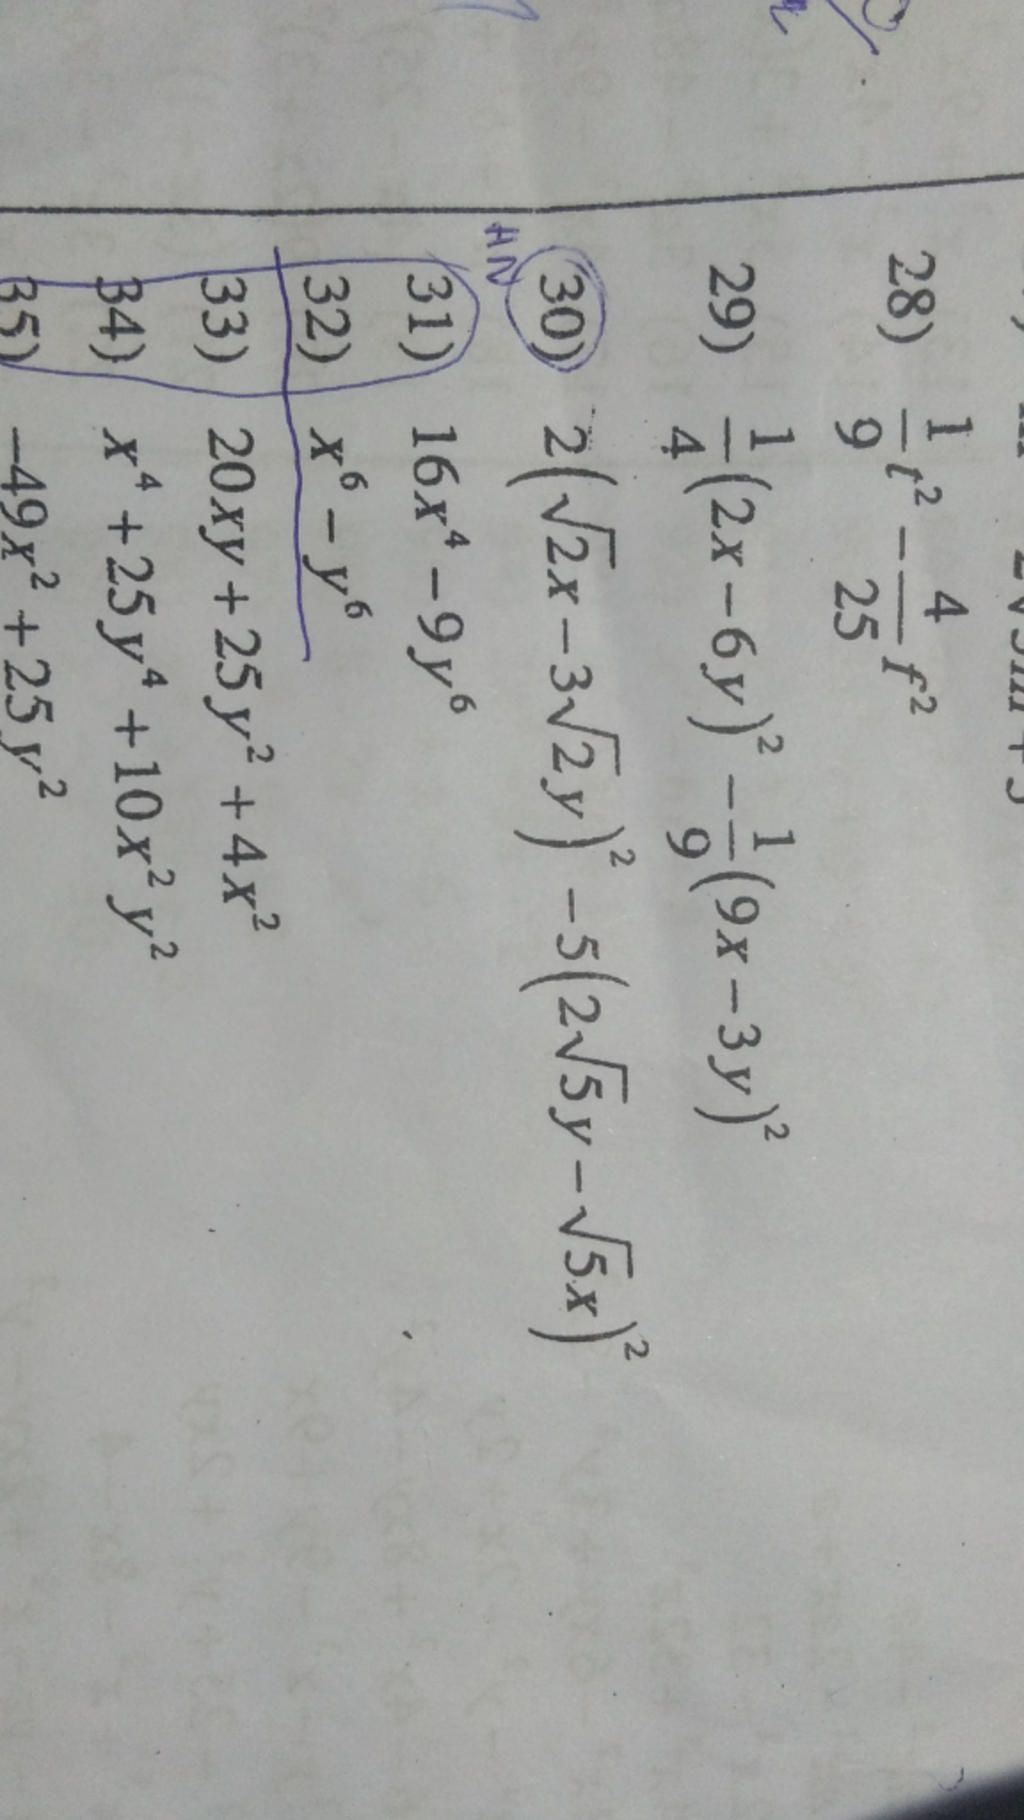 28) 1/9 t² - 4/25 f²
29) 1/4 (2x - 6y)² - 1/9 (9x - 3y)²
30) 2(√2x - 3√2y)² - 5(2√5y - √5x)²
31) 16x⁴ - 9y⁶
32) x⁶ - y⁶
33) 20xy + 25y² + 4x²
34) x⁴ + 25y⁴ + 10x²y²
35) -49x² + 25y²